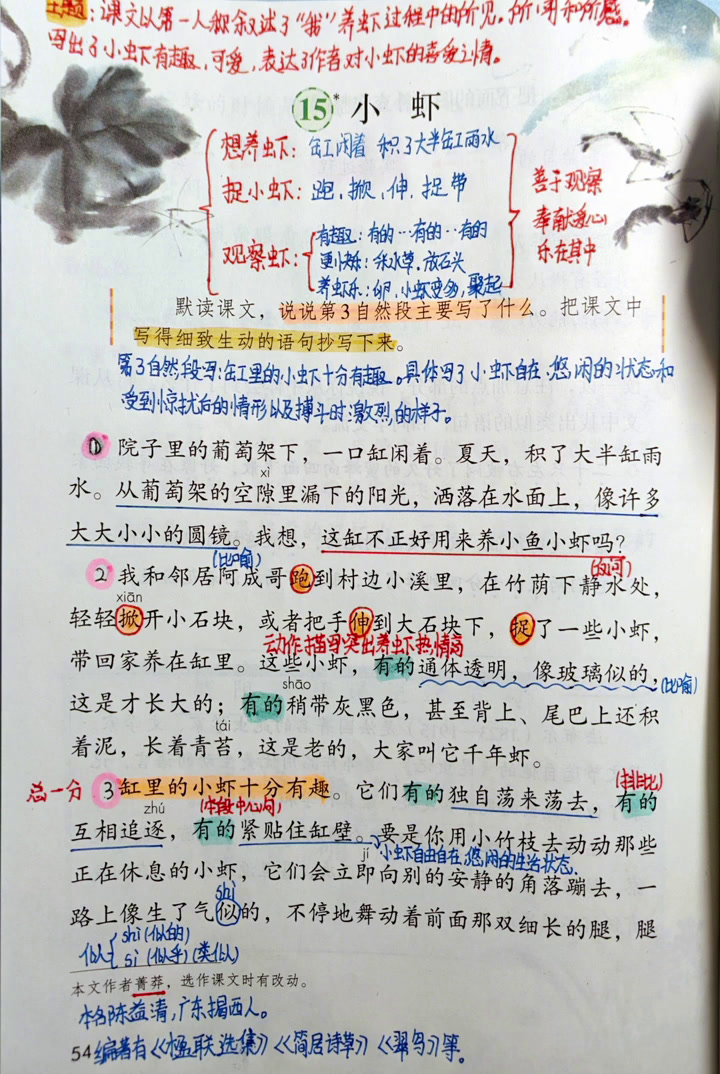 主题:课文以第一人称叙述了“我”养虾过程中的所见、所闻和所感。
写出了小虾有趣,可爱,表达了作者对小虾的喜爱之情。
15* 小 虾
想养虾:缸闲着 积了大半缸雨水
捉小虾:跑、掀、伸、捉 带
观察虾:
有趣:有的…有的…有的
更快乐:采水草、放石头
养虾乐:卵、小虾更多,聚起
善于观察
奉献爱心
乐在其中
默读课文,说说第3自然段主要写了什么。把课文中
写得细致生动的语句抄写下来。
第3自然段写:缸里的小虾十分有趣。具体写了小虾自在、悠闲的状态和
受到惊扰后的情形以及搏斗时激烈的样子。
① 院子里的葡萄架下,一口缸闲着。夏天,积了大半缸雨
xì
水。从葡萄架的空隙里漏下的阳光,洒落在水面上,像许多
大大小小的圆镜。我想,这缸不正好用来养小鱼小虾吗?
(比喻)
(反问)
2 我和邻居阿成哥跑到村边小溪里,在竹荫下静水处,
xiān
轻轻掀开小石块,或者把手伸到大石块下,捉了一些小虾,
动作描写突出养虾热情高
带回家养在缸里。这些小虾,有的通体透明,像玻璃似的,
(比喻)
shāo
这是才长大的;有的稍带灰黑色,甚至背上、尾巴上还积
tái
着泥,长着青苔,这是老的,大家叫它千年虾。
总一分
3 缸里的小虾十分有趣。它们有的独自荡来荡去,有的
(排比)
zhú
(本段中心句)
互相追逐,有的紧贴住缸壁。要是你用小竹枝去动动那些
小虾自由自在、悠闲的生活状态.
jí
正在休息的小虾,它们会立即向别的安静的角落蹦去,一
shì
路上像生了气似的,不停地舞动着前面那双细长的腿,腿
似
shì (似的)
sì (似乎)(类似)
本文作者菁莽,选作课文时有改动。
本名陈益清,广东揭西人。
54
编著有《楹联选集》《简居诗草》《翠鸟》等。